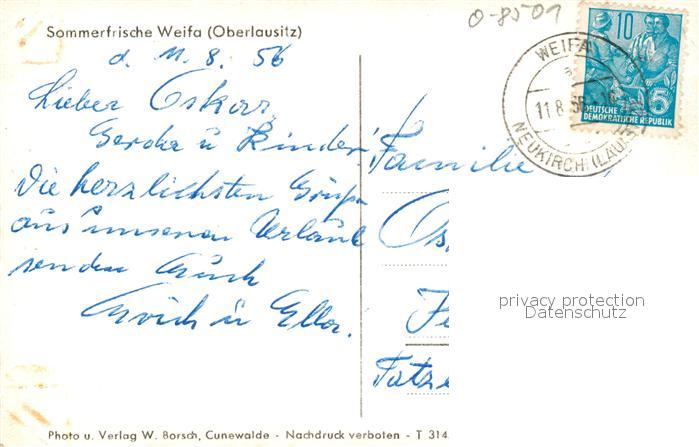 Sommerfrische Weifa (Oberlausitz)
O-8501
d. 11. 8. 56
Lieber Oskar,
Gerda u Kinder!
Die herzlichsten Grüße
aus unseren Urlaub
senden Euch
Erich u Ella.
10
5
DEUTSCHE
DEMOKRATISCHE REPUBLIK
WEIFA
11.8.56
NEUKIRCH (LAUSITZ)
Familie
Os
Fe
Tatze
privacy protection
Datenschutz
Photo u. Verlag W. Borsch, Cunewalde - Nachdruck verboten - T 314